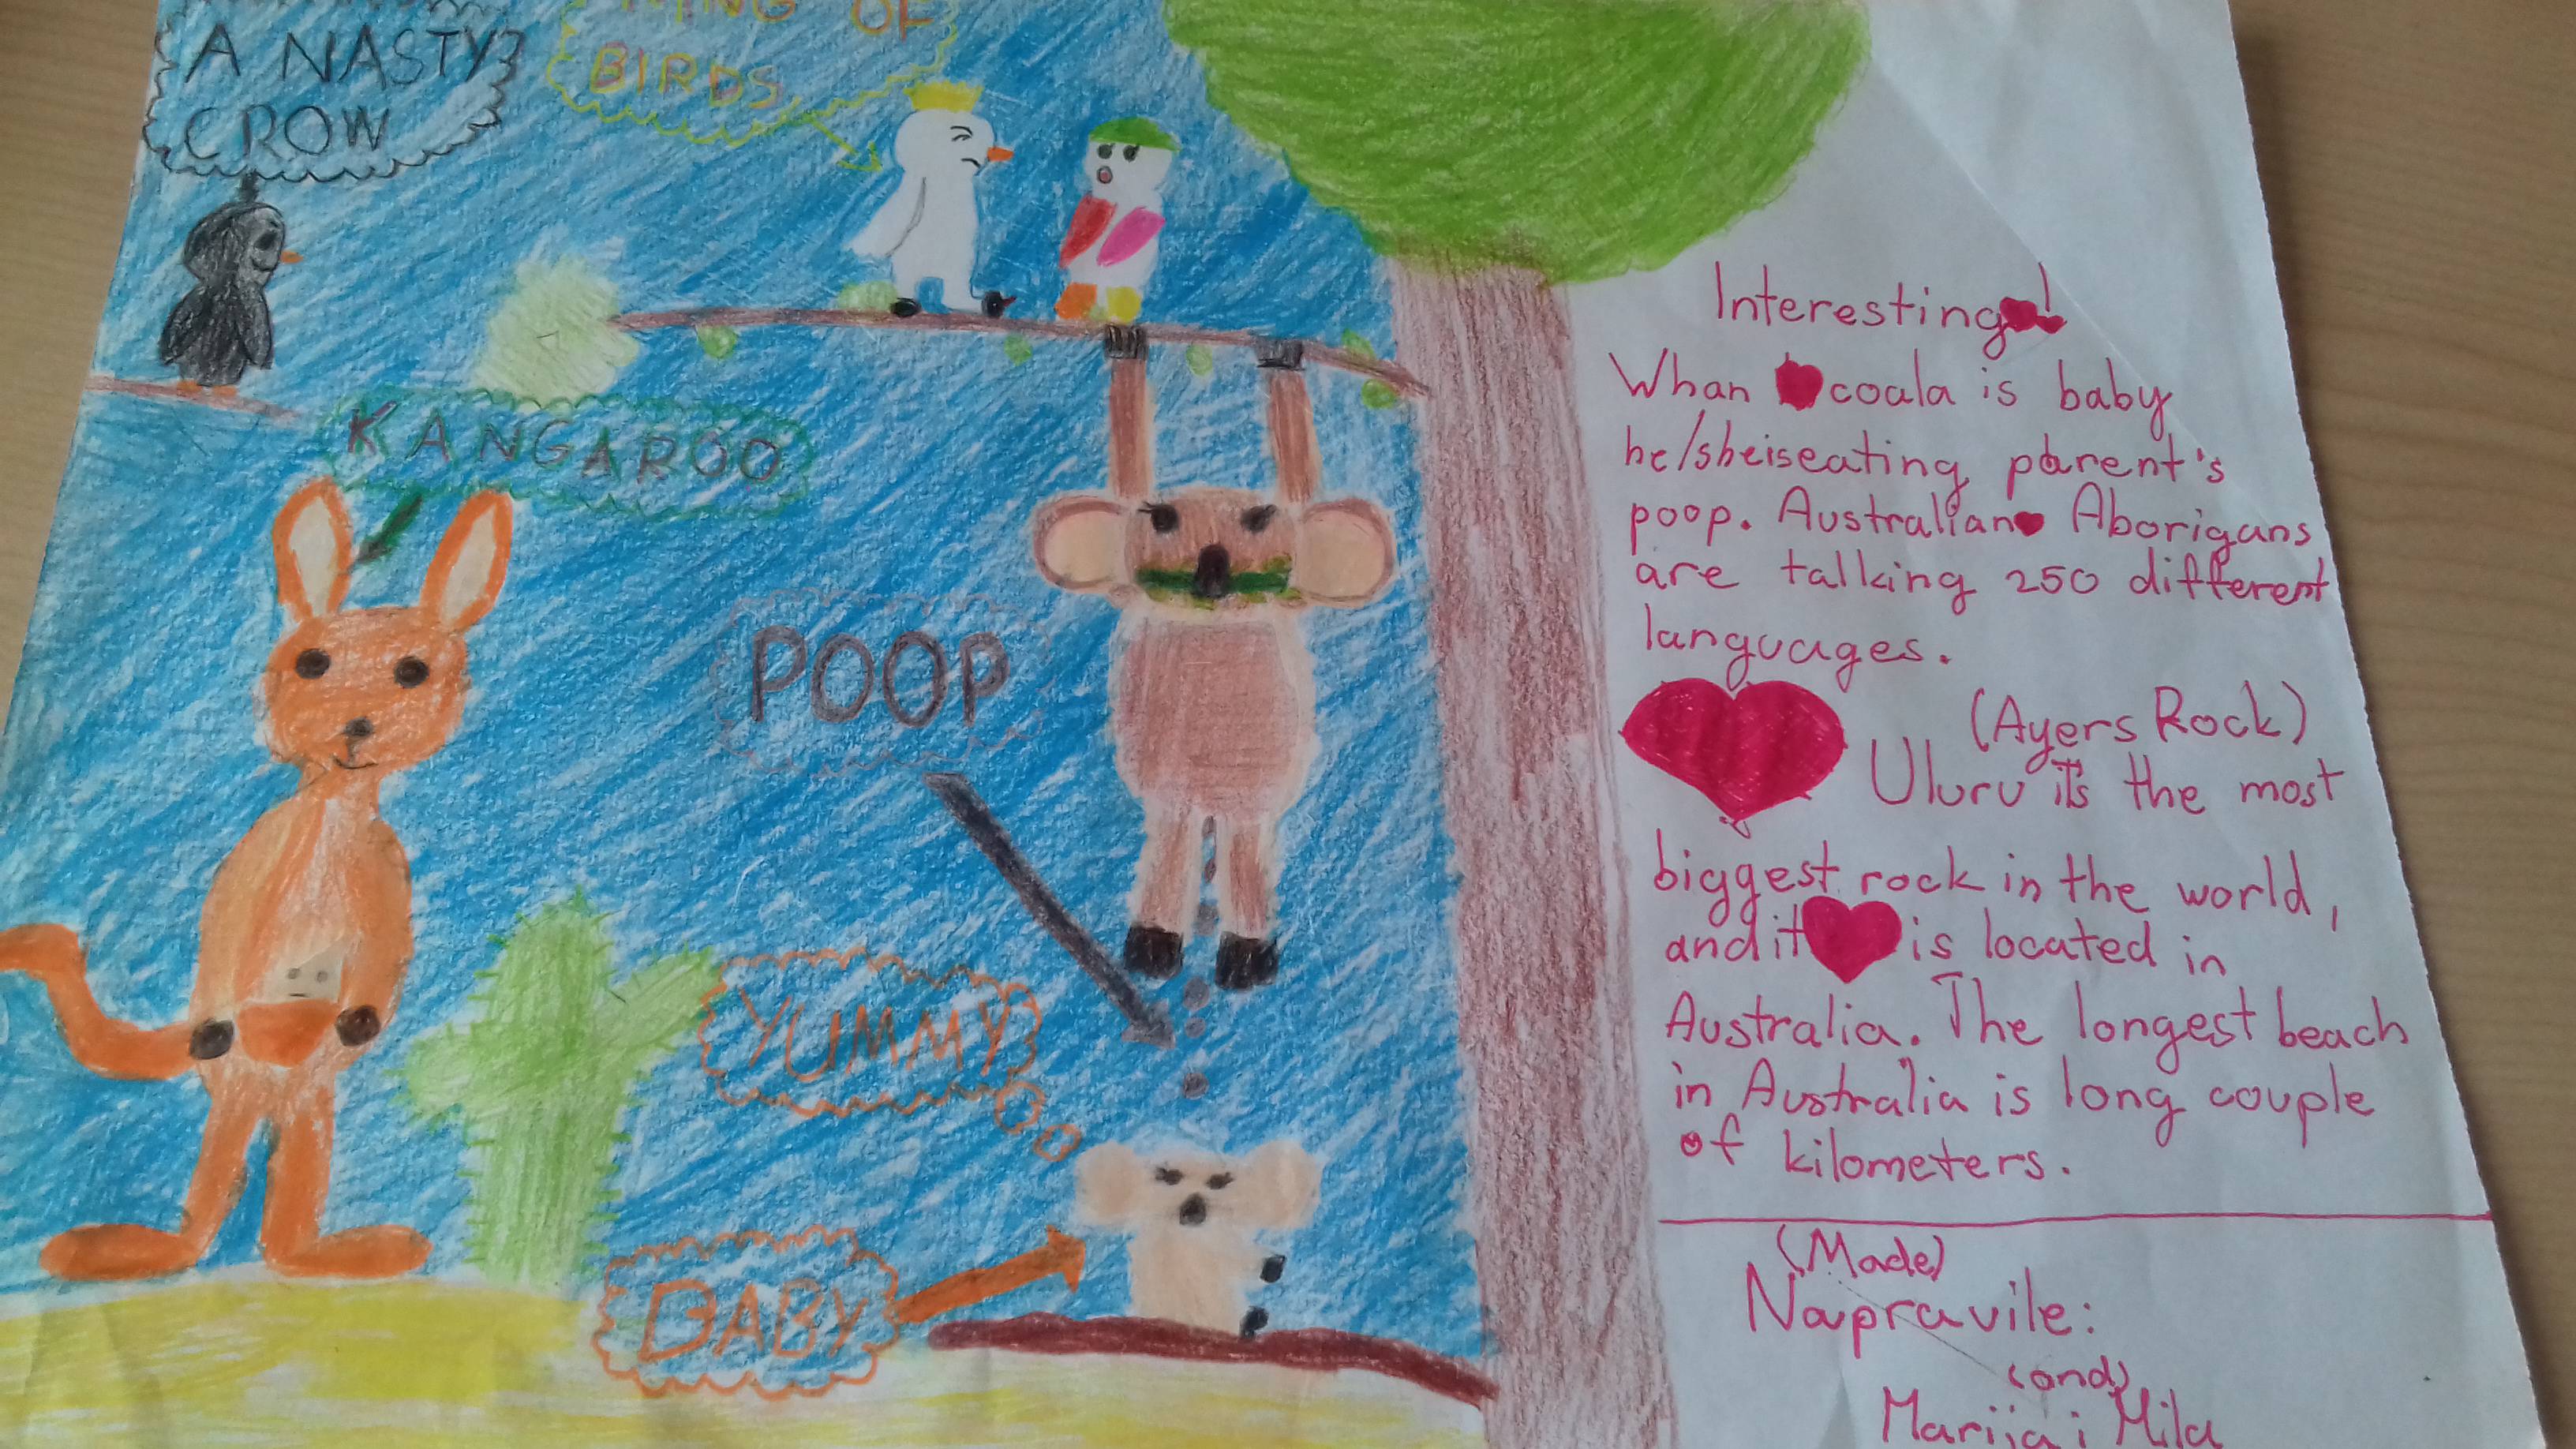 A NASTY
CROW
KING OF
BIRDS
KANGAROO
POOP
YUMMY
BABY
Interesting!
Whan coala is baby
he/sheiseating parent's
poop. Australian Aborigans
are talking 250 different
languages.
(Ayers Rock)
Uluru it's the most
biggest rock in the world,
and it is located in
Australia. The longest beach
in Australia is long couple
of kilometers.
(Made)
Napravile:
(and)
Marija i Mila